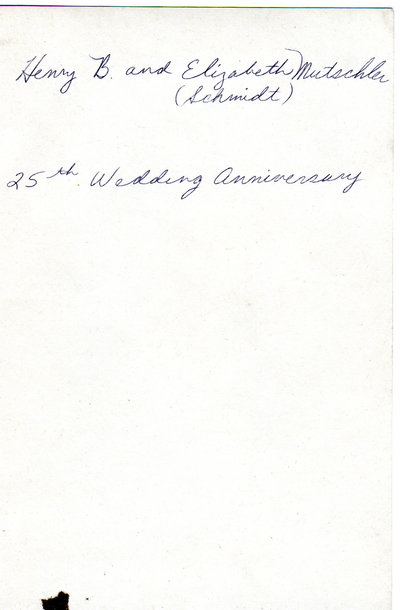 Henry B. and Elizabeth Mutschler
(Schmidt)
25th. Wedding Anniversary